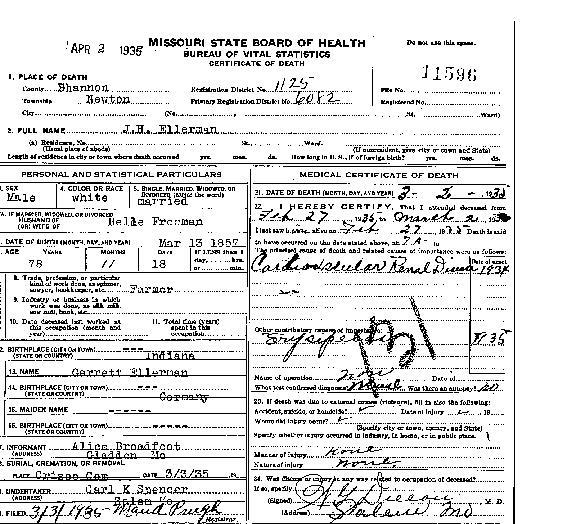 APR 2 1935
MISSOURI STATE BOARD OF HEALTH
Do not use this space.
BUREAU OF VITAL STATISTICS
CERTIFICATE OF DEATH
1. PLACE OF DEATH
County Shannon
Registration District No. 1125
File No. 11596
Township Newton
Primary Registration District No. 6082
Registered No.
City (No. St. Ward)
2. FULL NAME J.H. Ellerman
(a) Residence, No. St., Ward.
(Usual place of abode) (If nonresident, give city or town and State)
Length of residence in city or town where death occurred yrs. mos. ds. How long in U. S., if of foreign birth? yrs. mos. ds.
PERSONAL AND STATISTICAL PARTICULARS
3. SEX Male
4. COLOR OR RACE white
5. SINGLE, MARRIED, WIDOWED, OR DIVORCED (write the word) married
5A. IF MARRIED, WIDOWED, OR DIVORCED
HUSBAND OF
(OR) WIFE OF Belle Freeman
6. DATE OF BIRTH (MONTH, DAY, AND YEAR) Mar 13 1857
7. AGE YEARS MONTHS DAYS If LESS than 1
78 11 18 day, hrs.
or min.
8. Trade, profession, or particular
kind of work done, as spinner,
sawyer, bookkeeper, etc. Farmer
9. Industry or business in which
work was done, as silk mill,
saw mill, bank, etc.
10. Date deceased last worked at
this occupation (month and
year)
11. Total time (years)
spent in this
occupation
12. BIRTHPLACE (CITY OR TOWN) ---
(STATE OR COUNTRY) Indiana
13. NAME Garrett Ellerman
14. BIRTHPLACE (CITY OR TOWN) ---
(STATE OR COUNTRY) Germany
15. MAIDEN NAME ------
16. BIRTHPLACE (CITY OR TOWN) ------
(STATE OR COUNTRY)
17. INFORMANT Alice Broadfoot
(ADDRESS) Gladden Mo
18. BURIAL, CREMATION, OR REMOVAL
PLACE DATE 3/3/35
19. UNDERTAKER Carl K Spencer
(ADDRESS) Salem
20. FILED 3/3/1935 Maud Pugh
Registrar
MEDICAL CERTIFICATE OF DEATH
21. DATE OF DEATH (MONTH, DAY, AND YEAR) 3-2-1935
22. I HEREBY CERTIFY, That I attended deceased from
Feb 27 1935, to March 2 1935
I last saw h alive on Feb 27 1935 Death is said
to have occurred on the date stated above, at
The principal cause of death and related causes of importance were as follows:
Date of onset
Renal 1934
Other contributory causes of importance:
Erysipelas
Name of operation none Date of
What test confirmed diagnosis? Was there an autopsy? no
23. If death was due to external causes (violence), fill in also the following:
Accident, suicide, or homicide? Date of injury 19
Where did injury occur?
(Specify city or town, county, and State)
Specify whether injury occurred in industry, in home, or in public place.
Manner of injury none
Nature of injury none
24. Was disease or injury in any way related to occupation of deceased?
If so, specify
(Signed) M. D.
(Address) Salem Mo